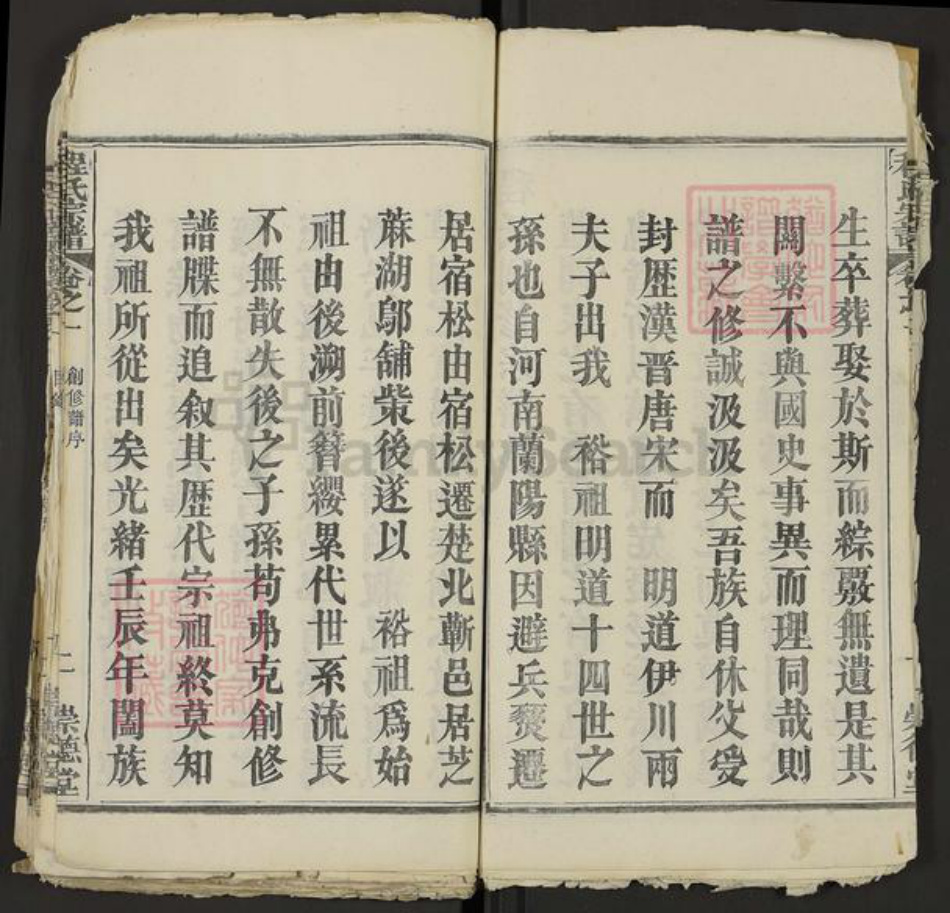 生卒葬娶於斯而綜覈無遺是其
關繫不與國史事異而理同哉則
譜之修誠汲汲矣吾族自休父受
封歷漢晉唐宋而 明道伊川兩
夫子出我 裕祖明道十四世之
孫也自河南蘭陽縣因避兵燹遷
居宿松由宿松遷楚北蘄邑居芝
蔴湖鄔舖柴後遂以 裕祖為始
祖由後溯前簪纓累代世系流長
不無散失後之子孫苟弗克創修
譜牒而追叙其歷代宗祖終莫知
我祖所從出矣光緒壬辰年闔族
程氏宗譜
卷之一
創修譜序
二
崇德堂
FamilySearch